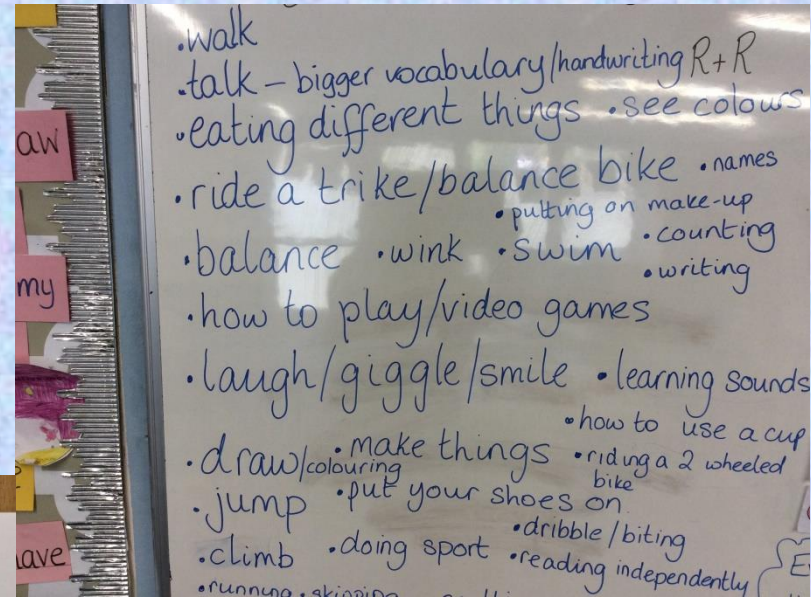 •walk
•talk – bigger vocabulary/handwriting R+R
•eating different things •see colours
•ride a trike/balance bike •names
•putting on make-up
•balance •wink •swim •counting
•writing
•how to play/video games
•laugh/giggle/smile •learning sounds
•how to use a cup
•draw/colouring •make things •riding a 2 wheeled bike
•jump •put your shoes on
•dribble/biting
•climb •doing sport •reading independently
•running •skipping
aw
my
ave